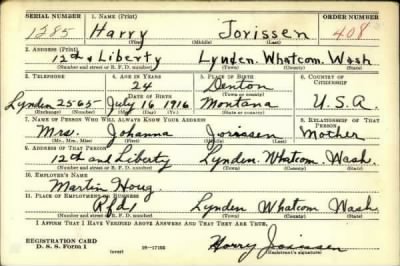 SERIAL NUMBER 1. NAME (Print) ORDER NUMBER
1285 Harry Jorissen 408
(First) (Middle) (Last)
2. ADDRESS (Print)
12th & Liberty Lynden. Whatcom. Wash
(Number and street or R. F. D. number) (Town) (County) (State)
3. TELEPHONE 4. AGE IN YEARS 5. PLACE OF BIRTH 6. COUNTRY OF CITIZENSHIP
24 Denton
DATE OF BIRTH (Town or county)
Lynden 2565 July 16 1916 Montana U.S.A.
(Exchange) (Number) (Mo.) (Day) (Yr.) (State or country)
7. NAME OF PERSON WHO WILL ALWAYS KNOW YOUR ADDRESS 8. RELATIONSHIP OF THAT PERSON
Mrs. Johanna Jorissen Mother
(Mr., Mrs., Miss) (First) (Middle) (Last)
9. ADDRESS OF THAT PERSON
12th and Liberty Lynden. Whatcom. Wash.
(Number and street or R. F. D. number) (Town) (County) (State)
10. EMPLOYER'S NAME
Martin Houg
11. PLACE OF EMPLOYMENT OR BUSINESS
Rfd1 Lynden Whatcom Wash
(Number and street or R. F. D. number) (Town) (County) (State)
I AFFIRM THAT I HAVE VERIFIED ABOVE ANSWERS AND THAT THEY ARE TRUE.
REGISTRATION CARD
D. S. S. Form 1 Harry Jorissen
(over) 16—17105 (Registrant's signature)